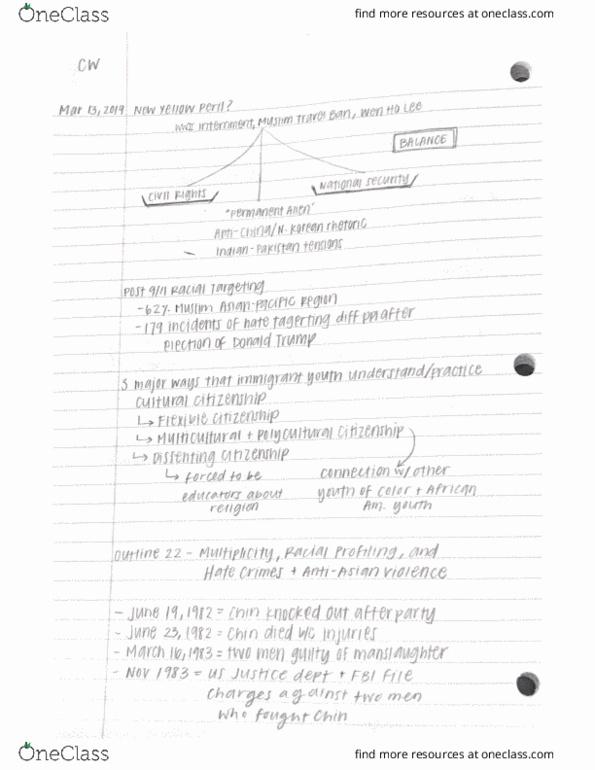 OneClass
find more resources at oneclass.com
CW
Mar 13, 2019 New Yellow Peril?
WW2 Internment, Muslim Travel Ban, Wen Ho Lee
BALANCE
Civil Rights
National Security
"Permanent Alien"
Anti-China/N. Korean rhetoric
Indian-Pakistan tensions
Post 9/11 Racial Targeting
-62% Muslim Asian-Pacific Region
-179 incidents of hate tagerting diff ppl after
election of Donald Trump
3 major ways that immigrant youth understand/practice
cultural citizenship
↳ Flexible citizenship
↳ Multicultural + Polycultural Citizenship
↳ Dissenting citizenship
↳ forced to be
educators about
religion
connection w/ other
youth of color + African
Am. youth
Outline 22 - Multiplicity, Racial Profiling, and
Hate Crimes + Anti-Asian violence
- June 19, 1982 = Chin knocked out after party
- June 23, 1982 = Chin died b/c injuries
- March 16, 1983 = two men guilty of manslaughter
- Nov 1983 = US Justice dept + FBI file
charges against two men
who fought Chin
OneClass
find more resources at oneclass.com